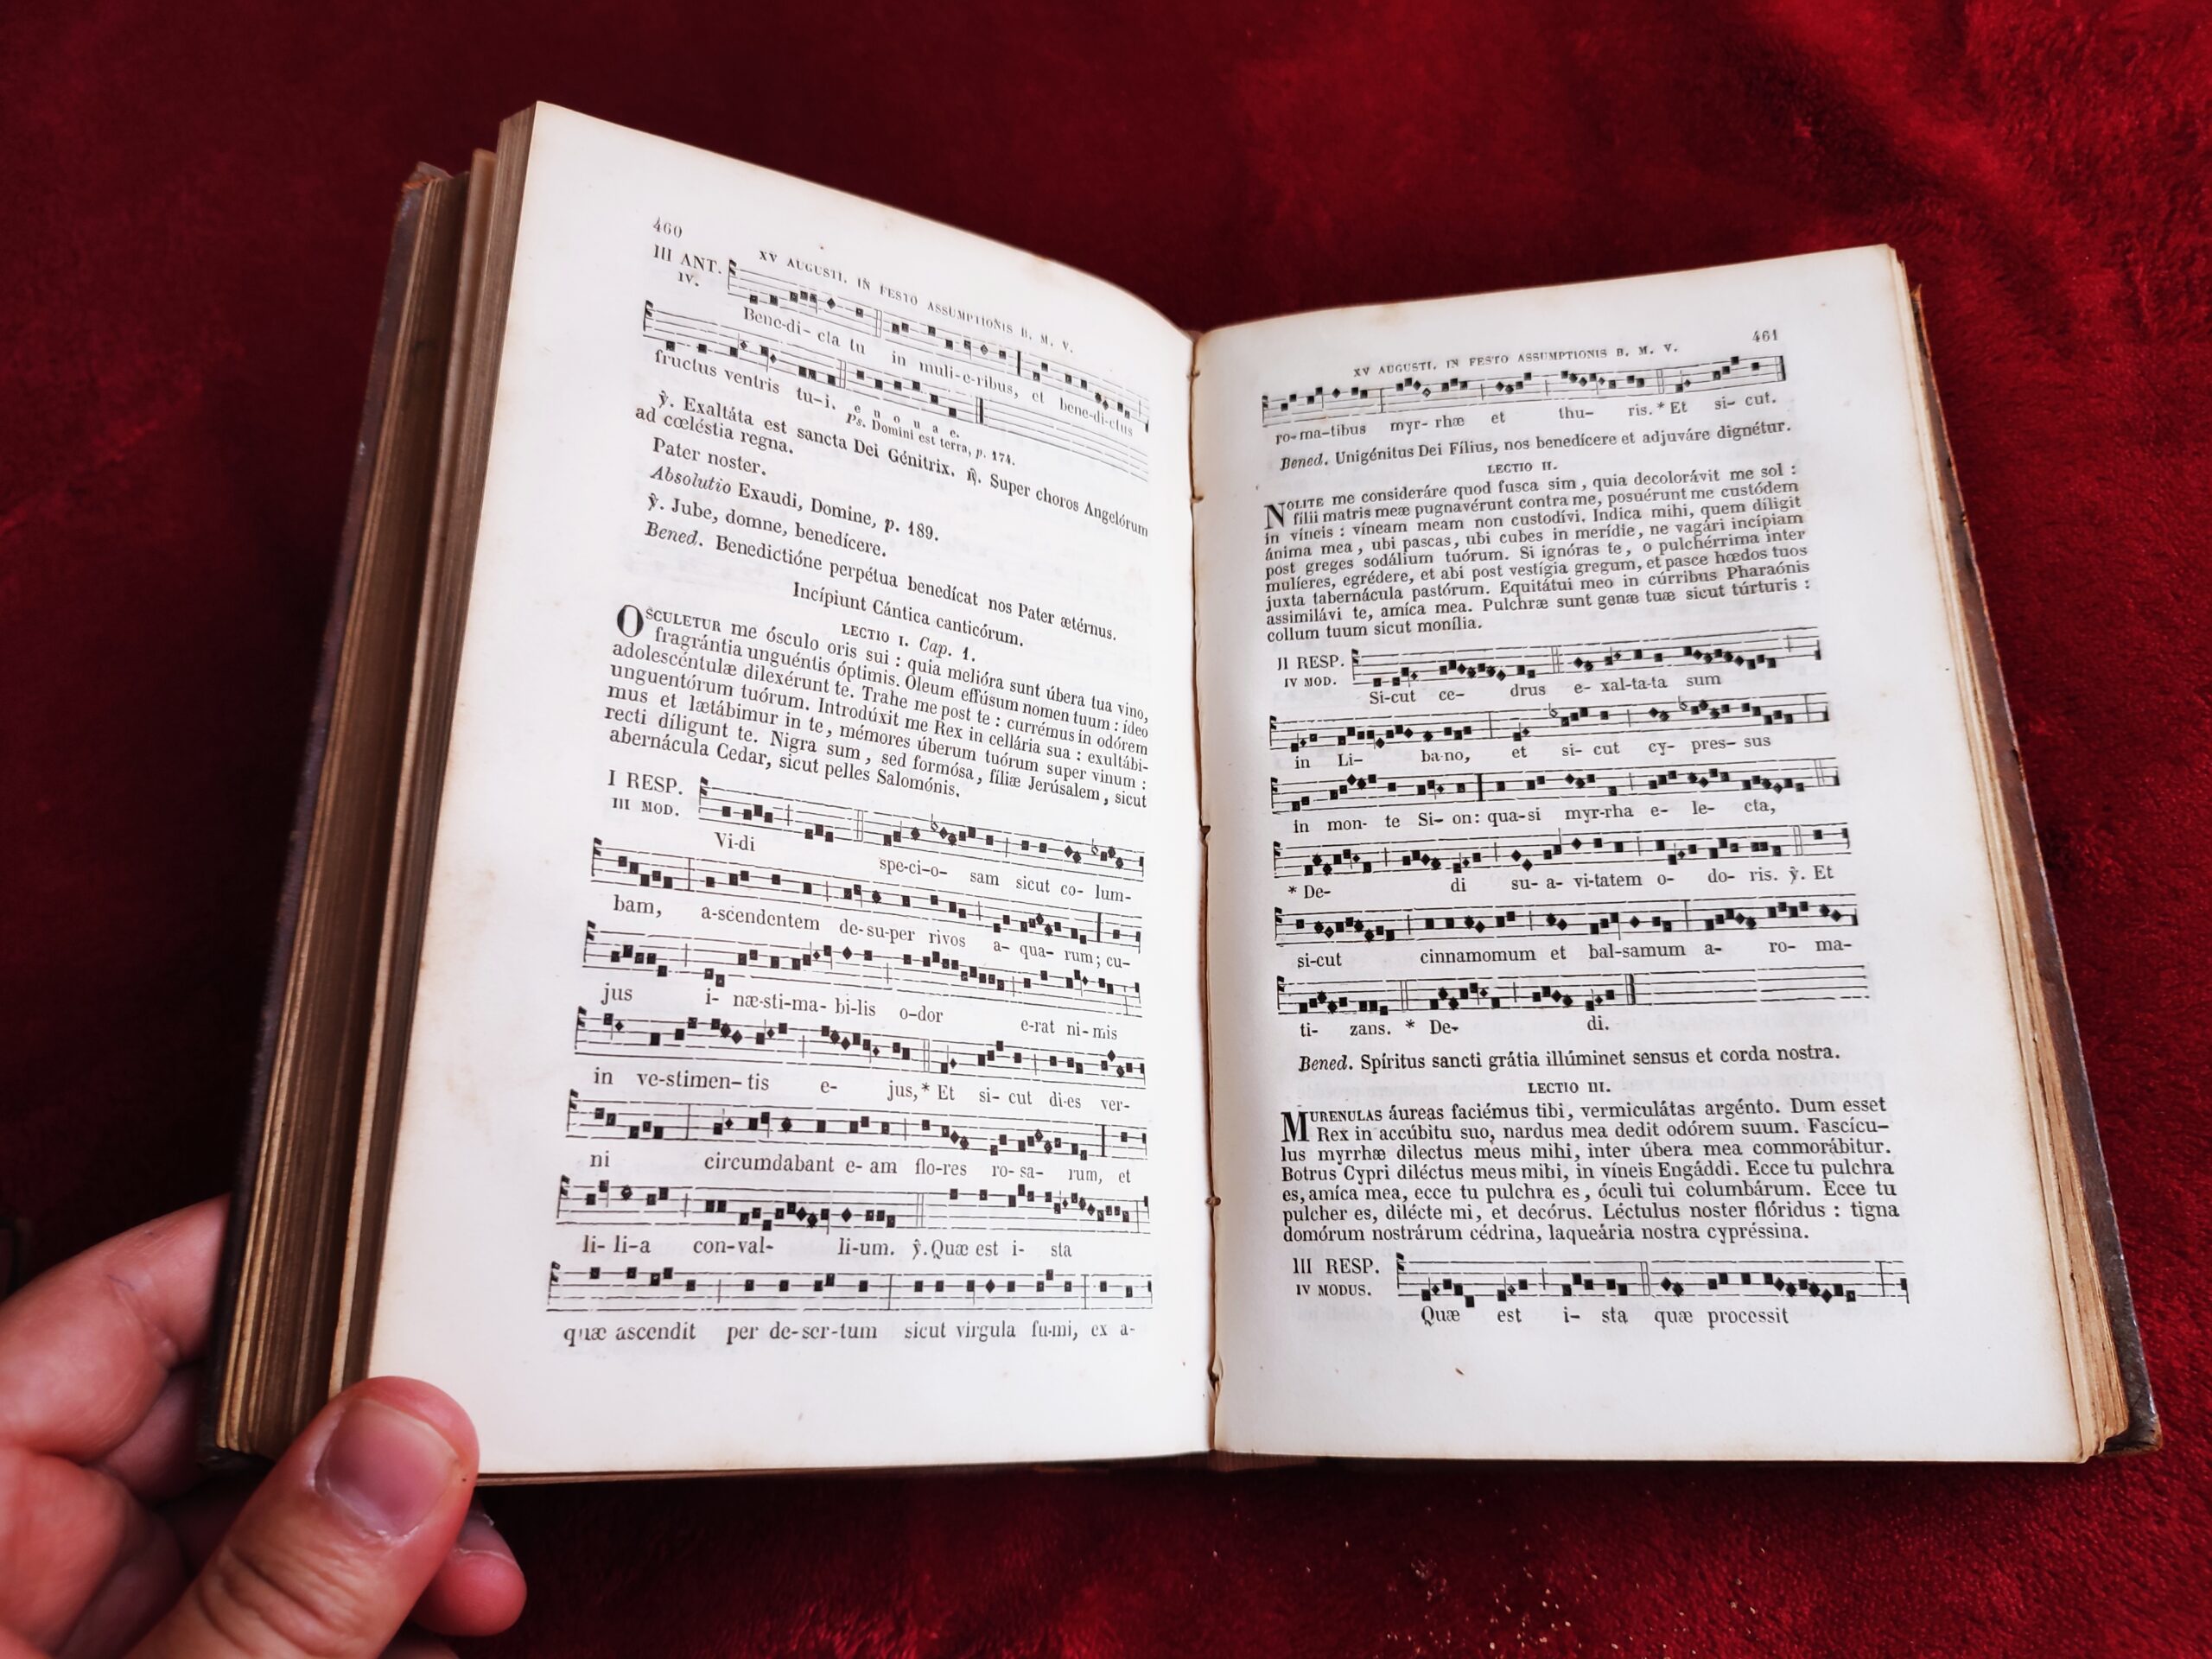 460
XV AUGUSTI. IN FESTO ASSUMPTIONIS B. M. V.
III ANT.
IV.
Bene-di- cta tu in muli-e-ribus, et bene-di-ctus
fructus ventris tu-i. e u o u a e.
Ps. Domini est terra, p. 174.
℣. Exaltáta est sancta Dei Génitrix. ℟. Super choros Angelórum
ad cœléstia regna.
Pater noster.
Absolutio Exaudi, Domine, p. 189.
℣. Jube, domne, benedícere.
Bened. Benedictióne perpétua benedícat nos Pater ætérnus.
Incípiunt Cántica canticórum.
LECTIO I. Cap. 1.
OSCULETUR me ósculo oris sui : quia melióra sunt úbera tua vino,
fragrántia unguéntis óptimis. Oleum effúsum nomen tuum : ídeo
adolescéntulæ dilexérunt te. Trahe me post te : currémus in odórem
unguentórum tuórum. Introdúxit me Rex in cellária sua : exultábi-
mus et lætábimur in te, mémores úberum tuórum super vinum :
recti díligunt te. Nigra sum, sed formósa, fíliæ Jerúsalem, sicut
abernácula Cedar, sicut pelles Salomónis.
I RESP.
III MOD.
Vi-di spe-ci-o- sam sicut co- lum-
bam, a-scendentem de-su-per rivos a- qua- rum; cu-
jus i- næ-sti-ma- bi-lis o-dor e-rat ni-mis
in ve-stimen-tis e- jus,* Et si- cut di-es ver-
ni circumdabant e- am flo-res ro-sa- rum, et
li- li-a con-val- li-um. ℣. Quæ est i- sta
quæ ascendit per de-ser-tum sicut virgula fu-mi, ex a-
461
XV AUGUSTI. IN FESTO ASSUMPTIONIS B. M. V.
ro-ma-tibus myr- rhæ et thu- ris. * Et si- cut.
Bened. Unigénitus Dei Fílius, nos benedícere et adjuváre dignétur.
LECTIO II.
NOLITE me consideráre quod fusca sim, quia decolorávit me sol :
fílii matris meæ pugnavérunt contra me, posuérunt me custódem
in víneis : víneam meam non custodívi. Indica mihi, quem díligit
ánima mea, ubi pascas, ubi cubes in merídie, ne vagári incípiam
post greges sodálium tuórum. Si ignóras te, o pulchérrima inter
mulíeres, egrédere, et abi post vestígia gregum, et pasce hœdos tuos
juxta tabernácula pastórum. Equitátui meo in cúrribus Pharaónis
assimilávi te, amíca mea. Pulchræ sunt genæ tuæ sicut túrturis :
collum tuum sicut monília.
II RESP.
IV MOD.
Si-cut ce- drus e- xal-ta-ta sum
in Li- ba-no, et si- cut cy- pres- sus
in mon- te Si- on: qua-si myr-rha e- le- cta,
* De- di su- a- vi-tatem o- do- ris. ℣. Et
si-cut cinnamomum et bal-samum a- ro- ma-
ti- zans. * De- di.
Bened. Spíritus sancti grátia illúminet sensus et corda nostra.
LECTIO III.
MURENULAS áureas faciémus tibi, vermiculátas argénto. Dum esset
Rex in accúbitu suo, nardus mea dedit odórem suum. Fascícu-
lus myrrhæ diléctus meus mihi, inter úbera mea commorábitur.
Botrus Cypri diléctus meus mibi, in víneis Engáddi. Ecce tu pulchra
es, amíca mea, ecce tu pulchra es, óculi tui columbárum. Ecce tu
pulcher es, dilécte mi, et decórus. Léctulus noster flóridus : tigna
domórum nostrárum cédrina, laqueária nostra cypréssina.
III RESP.
IV MODUS.
Quæ est i- sta quæ processit